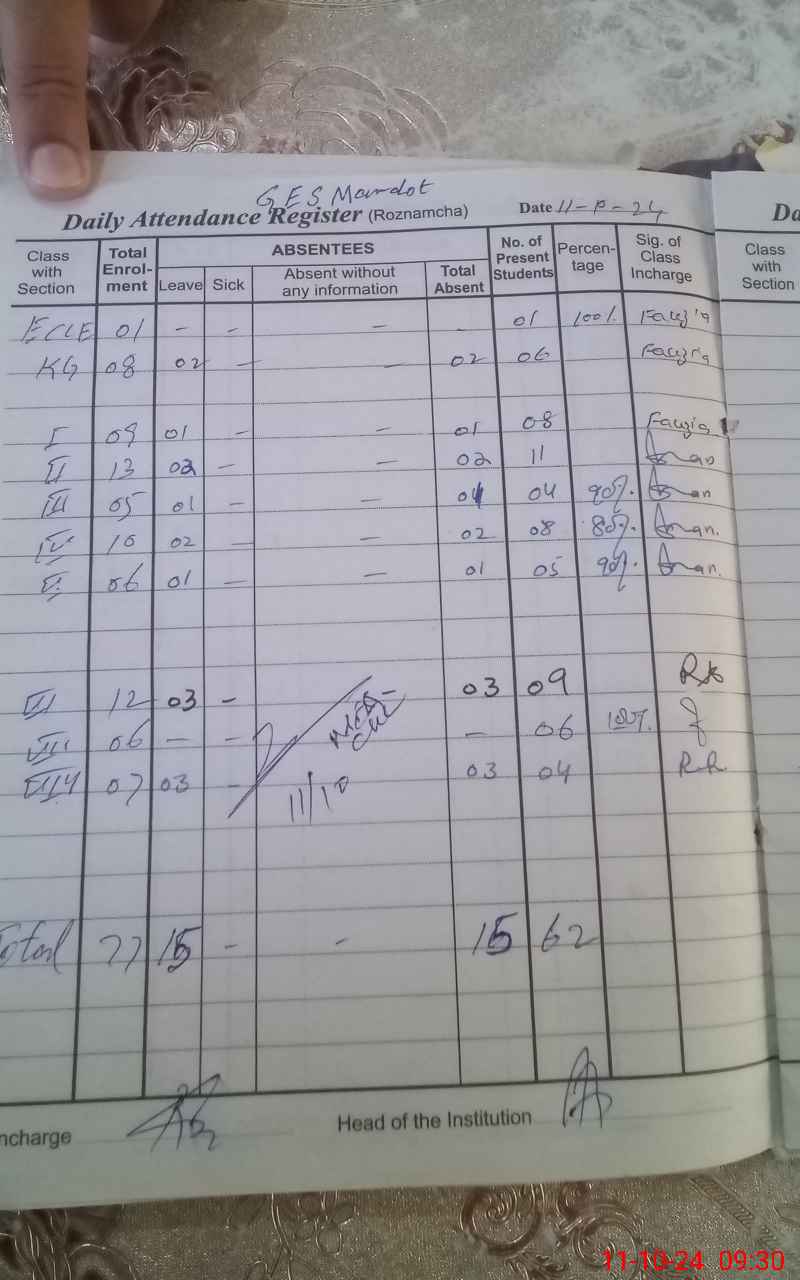 G.E.S Mamdot
Daily Attendance Register (Roznamcha) Date 11-10-24
Class with Section | Total Enrol-ment | ABSENTEES | No. of Present Students | Percen-tage | Sig. of Class Incharge
Leave | Sick | Absent without any information | Total Absent
ECCE 01 - - - - 01 100% Fauzia
KG 08 02 - - 02 06 Fauzia
I 09 01 - - 01 08 Fauzia
II 13 02 - - 02 11
III 05 01 - - 01 04 90%
IV 10 02 - - 02 08 80%
V 06 01 - - 01 05 90%
VI 12 03 - 03 09
VII 06 - - - 06 100%
VIII 07 03 - 03 04 RR
11/10
Total 77 15 - - 15 62
ncharge Head of the Institution
Da
Class with Section
11-10-24 09:30